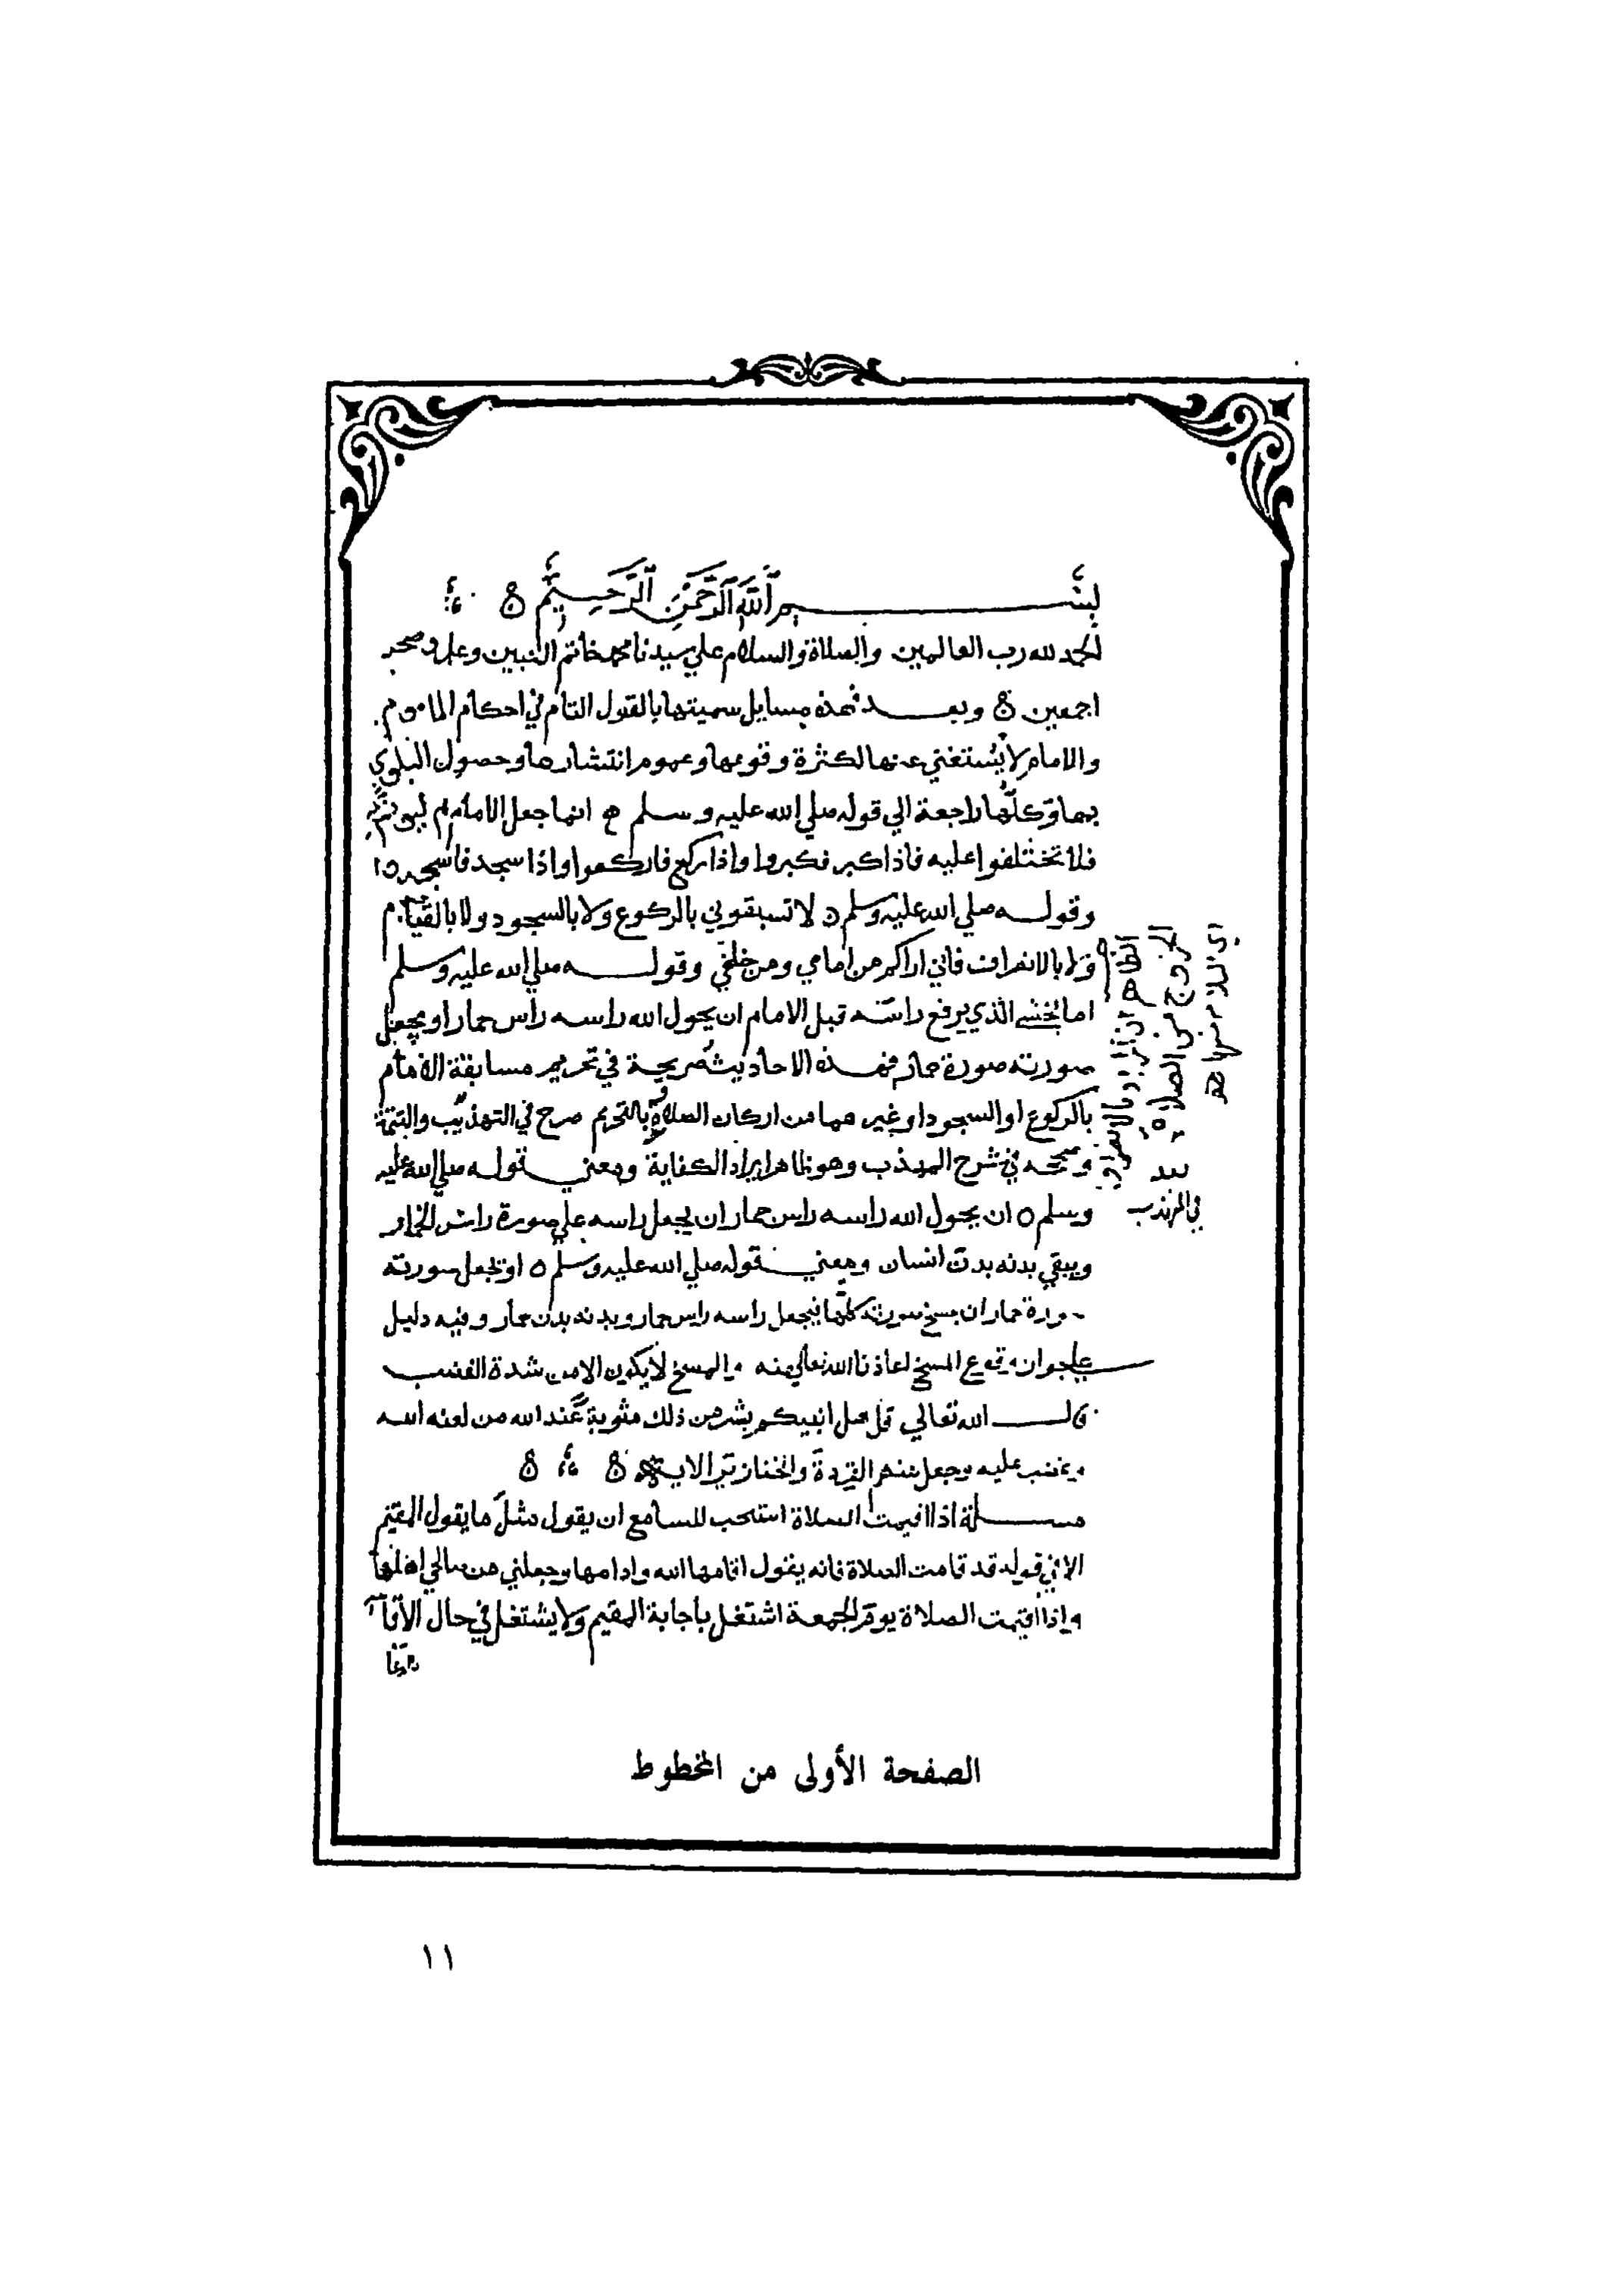 بِسْمِ ٱللَّهِ ٱلرَّحْمَٰنِ ٱلرَّحِيمِ
الحمد لله رب العالمين والصلاة والسلام علي سيدنا محمد خاتم النبيين وعلي
اجمعين وبعد فهذه مسايل سميتها بالقول التام في احكام الماموم
والامام لا يستغني عنها لكثرة وقوعها وعموم انتشارها وحصول البلوي
بها وكلها راجعة الي قوله صلي الله عليه وسلم انما جعل الامام ليوتم به
فلا تختلفوا عليه فاذا كبر فكبروا واذا ركع فاركعوا واذا سجد فاسجدوا
وقوله صلي الله عليه وسلم لا تسبقوني بالركوع ولا بالسجود ولا بالقيام
ولا بالانصراف فاني اراكم من امامي ومن خلفي وقوله صلي الله عليه وسلم
اما يخشي الذي يرفع راسه قبل الامام ان يحول الله راسه راس حمار او يجعل
صورته صورة حمار فهذه الاحاديث صريحة في تحريم مسابقة الامام
بالركوع او السجود او غيرهما من اركان الصلاة بالتحريم صرح في التهذيب والتتمة
وصححه في شرح المهذب وهو ظاهر ايراد الكفاية ومعني قوله صلي الله عليه
وسلم ان يحول الله راسه راس حمار ان يجعل راسه علي صورة راس الحمار
ويبقي بدنه بدن انسان ومعني قوله صلي الله عليه وسلم او يجعل صورته
صورة حمار ان يمسخ صورته كلها فيجعل راسه راس حمار وبدنه بدن حمار وفيه دليل
علي جواز وقوع المسخ اعاذنا الله تعالي منه والمسخ لا يكون الا من شدة الغضب
قال الله تعالي قل هل انبيكم بشر من ذلك مثوبة عند الله من لعنه الله
وغضب عليه وجعل منهم القردة والخنازير الاية
مسلة اذا اقيمت الصلاة استحب للسامع ان يقول مثل ما يقول المقيم
الا في قوله قد قامت الصلاة فانه يقول اقامها الله وادامها وجعلني من صالحي اهلها
واذا اقيمت الصلاة يوم الجمعة اشتغل باجابة المقيم ولا يشتغل في حال الاقامة
الظاهر ان المراد بالانصراف
الخروج من الصلاة
اي السلام منها
في المهذب
الصفحة الأولى من المخطوط
١١